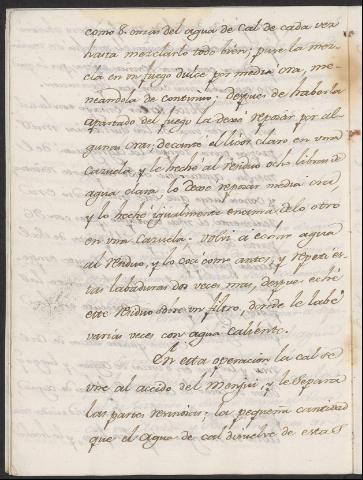 como 8. onzas del agua de Cal de cada vez
hasta mezclarlo todo bien; puse la mez-
cla en un fuego dulce por media ora, me-
neandola de continuo; despues de haberla
apartado del fuego la dexé reposar por al-
gunas oras; decanté el licor claro en una
Cazuela, y le heché al residuo ocho libras de
agua clara, lo dexé reposar media ora
y lo heché igualmente encima de lo otro
en una Cazuela. volvi a echar agua
al residuo, y lo cocí como antes, y repetí es-
tas labaduras dos veces mas, despues eché
este residuo sobre un filtro, donde le labé
varias veces con agua caliente.
En esta operación la cal se
une al accido del Menjui, y le separa
las partes resinosas; la pequeña cantidad
que el Agua de cal disuelve de esta